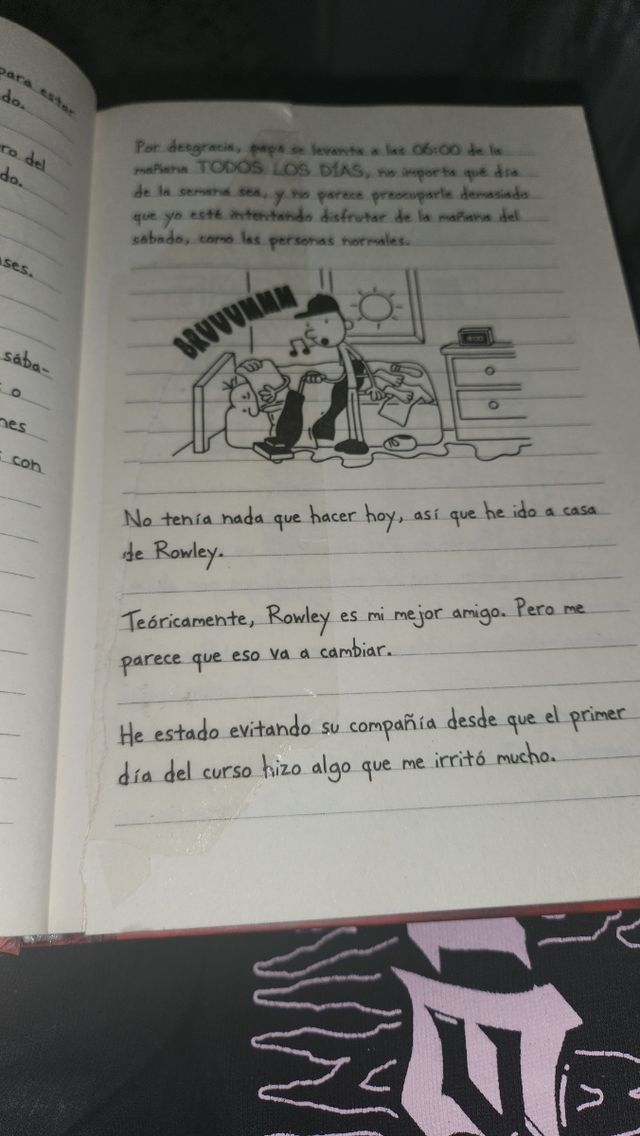 para estar
do.
ro del
do.
ses.
sába-
o
nes
con
Por desgracia, papá se levanta a las 06:00 de la
mañana TODOS LOS DÍAS, no importa qué día
de la semana sea, y no parece preocuparle demasiado
que yo esté intentando disfrutar de la mañana del
sábado, como las personas normales.
BRUUUMMM
No tenía nada que hacer hoy, así que he ido a casa
de Rowley.
Teóricamente, Rowley es mi mejor amigo. Pero me
parece que eso va a cambiar.
He estado evitando su compañía desde que el primer
día del curso hizo algo que me irritó mucho.